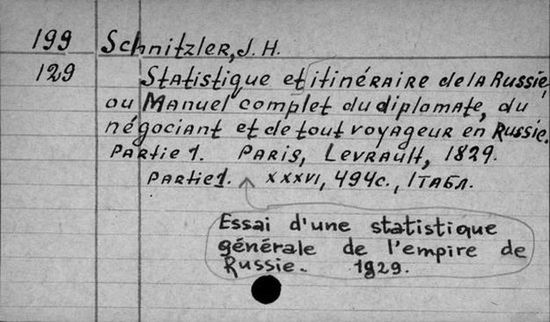 199 Schnitzler, J. H.
129 Statistique et itinéraire de la Russie,
ou Manuel complet du diplomate, du
négociant et de tout voyageur en Russie.
Partie 1. Paris, Levrault, 1829.
Partie 1. XXXVI, 494 с., 1 табл.
Essai d'une statistique
générale de l'empire de
Russie. 1829.